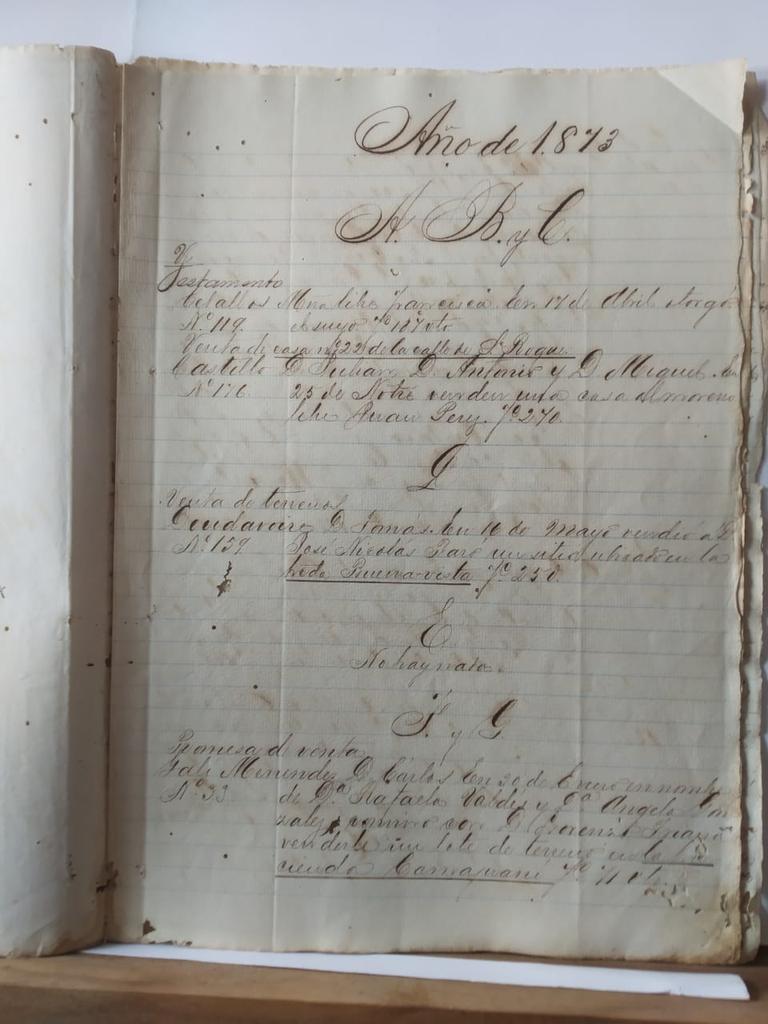 Año de 1873
A. B. y C.
Testamento
Francisca. En 17 de Abril otorgó
Nº 119. el suyo fº 187 vto
Venta de casa nº 22 de la calle de Sn Roque
Castillo D. Julian D. Antonio y D. Miguel. En
Nº 176 25 de Nobre venden una casa al moreno
libe Juan Perez. fº 270.
Venta de terrenos
D. Tomás. En 16 de Mayo vendió a D
Nº 159 José Nicolás un sitio ubicado en la
hcda Buena-vista fº 250.
E
No hay nada.
F. y G
Promesa de venta
Menendez D. Cárlos. En 30 de Enero en nombe
Nº 33 de Dª Rafaela Valdes y Dª Angela Gon
zalez convino con D.
venderle un lote de terreno en la ha
cienda Camajuani fº 71 vto